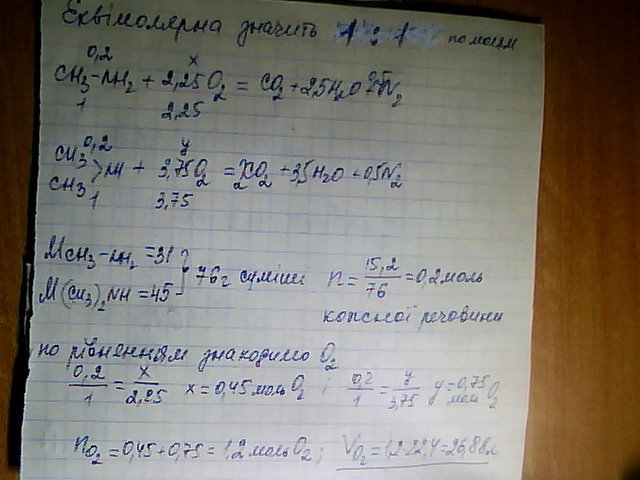 Еквімолярна значить 1:1 по молям
0,2 x
CH3-NH2 + 2,25O2 = CO2 + 2,5H2O + 0,5N2
1 2,25
CH3 0,2 y
CH3 > NH + 3,75O2 = 2CO2 + 3,5H2O + 0,5N2
1 3,75
M CH3-NH2 = 31
M(CH3)2NH = 45 } 76г суміші n = 15,2/76 = 0,2 моль
кожної речовини
по рівнянням знаходимо O2
0,2/1 = x/2,25 x = 0,45 моль O2 ; 0,2/1 = y/3,75 y = 0,75 моль O2
nO2 = 0,45 + 0,75 = 1,2 моль O2 ; VO2 = 1,2·22,4 = 26,88л